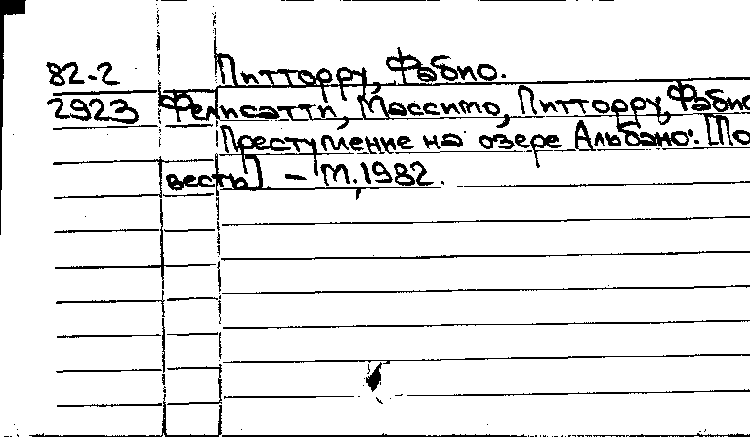 82-2 Питторру, Фабио.
2923 Фелисатти, Массимо, Питторру, Фабио
Преступление на озере Альбано: [По
весть]. – М., 1982.